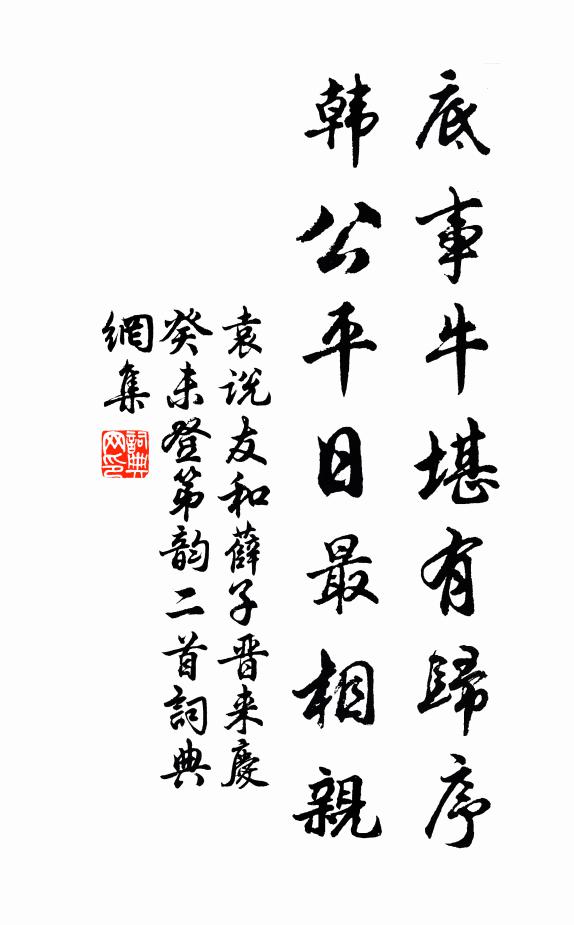 底事牛堪有歸序
韓公平日最相親
袁説友和薛子晋来慶
癸未登第韵二首詞典
網集
詞典网印